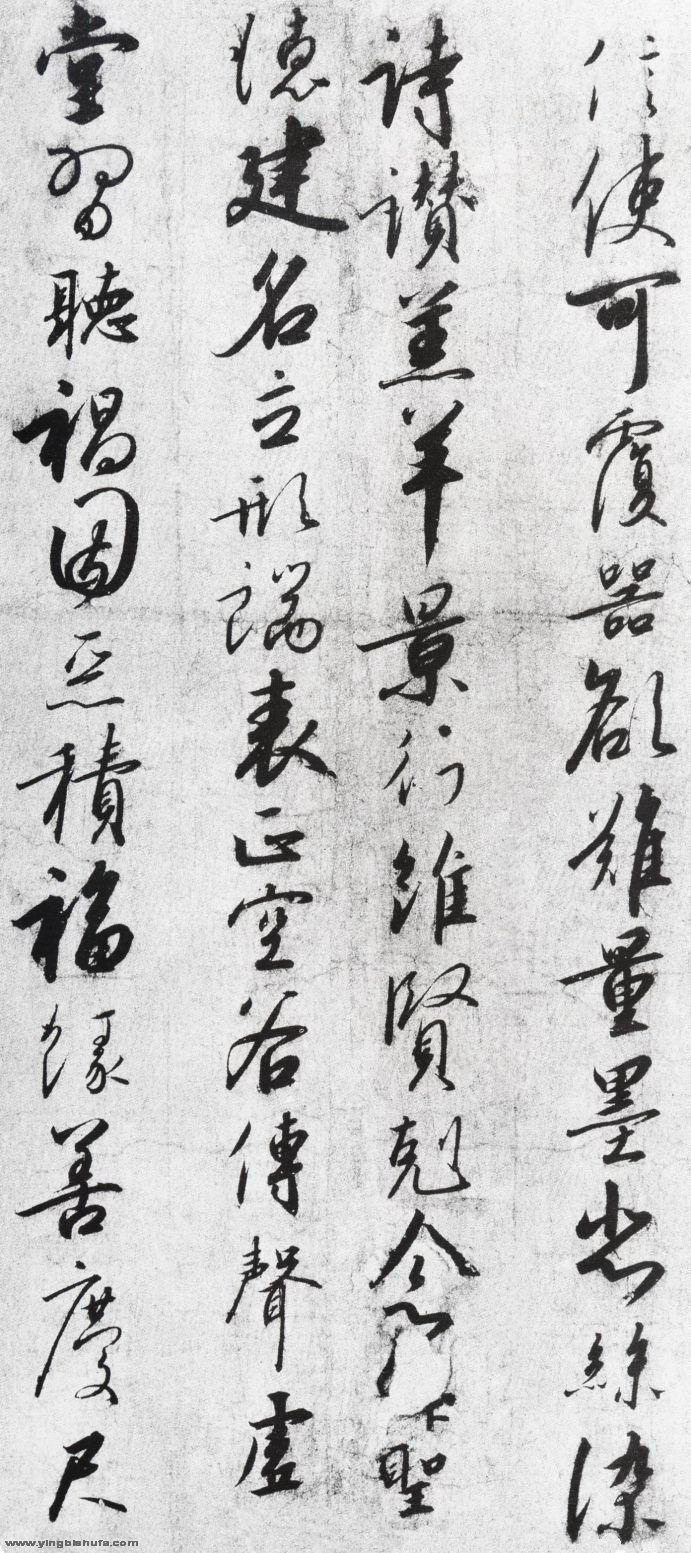 信使可覆器欲難量墨悲絲染
詩讚羔羊景行維賢剋念作聖
德建名立形端表正空谷傳聲虛
堂習聽禍因惡積福緣善慶尺
www.yingbishufa.com